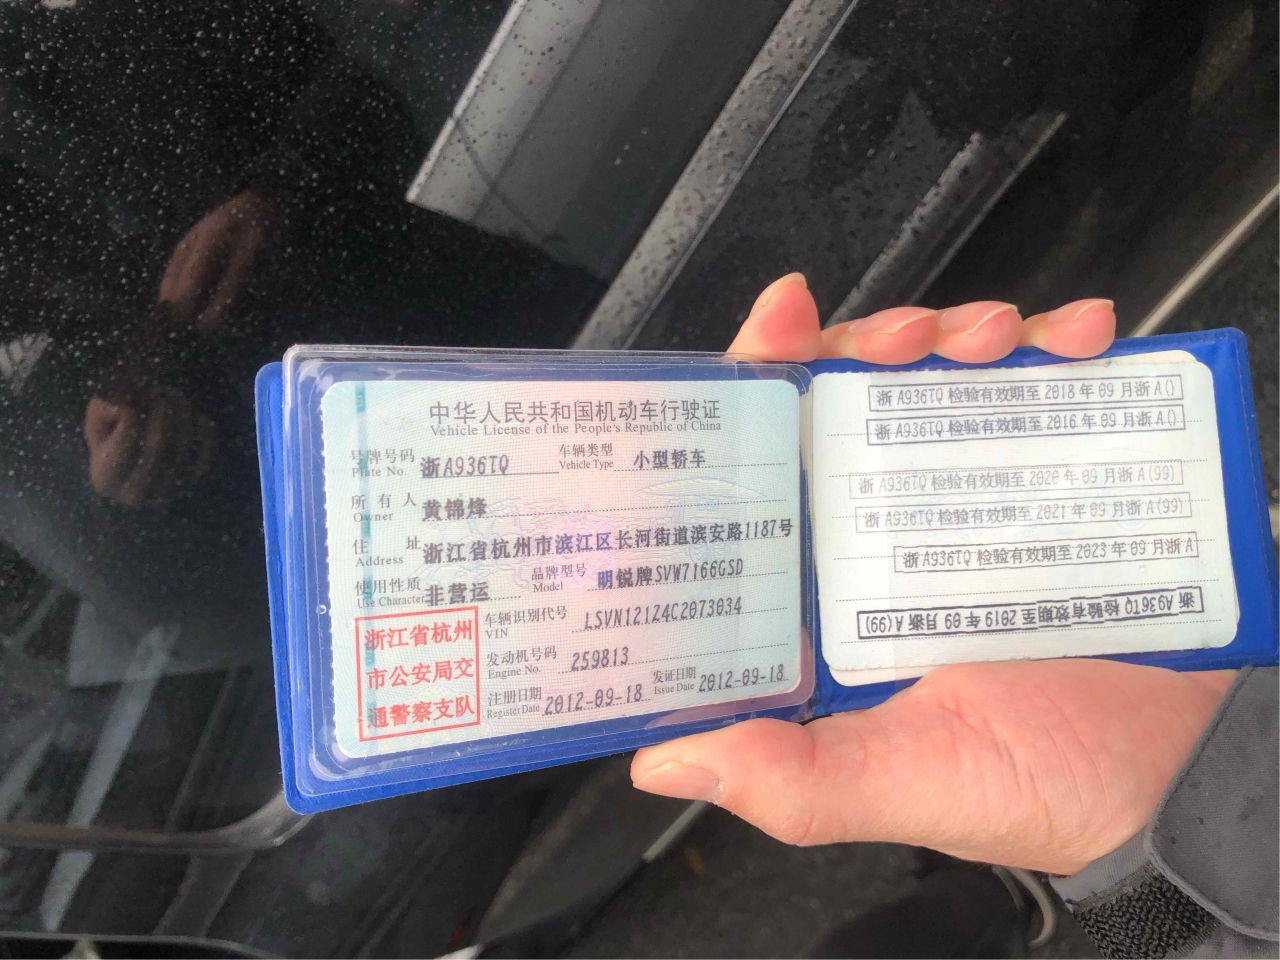 中华人民共和国机动车行驶证
Vehicle License of the People's Republic of China
号牌号码 浙A936TQ 车辆类型 小型轿车
Plate No. Vehicle Type
所有人 黄锦烽
Owner
住址 浙江省杭州市滨江区长河街道滨安路1187号
Address
使用性质 非营运 品牌型号 明锐牌SVW7166GSD
Use Character Model
浙江省杭州
市公安局交
通警察支队
车辆识别代号 LSVN121Z4C2073034
VIN
发动机号码 259813
Engine No.
注册日期 2012-09-18 发证日期 2012-09-18
Register Date Issue Date
浙A936TQ检验有效期至2018年09月浙A()
浙A936TQ检验有效期至2016年09月浙A()
浙A936TQ检验有效期至2020年09月浙A(99)
浙A936TQ检验有效期至2021年09月浙A(99)
浙A936TQ检验有效期至2023年09月浙A
浙A936TQ检验有效期至2019年09月浙A(99)